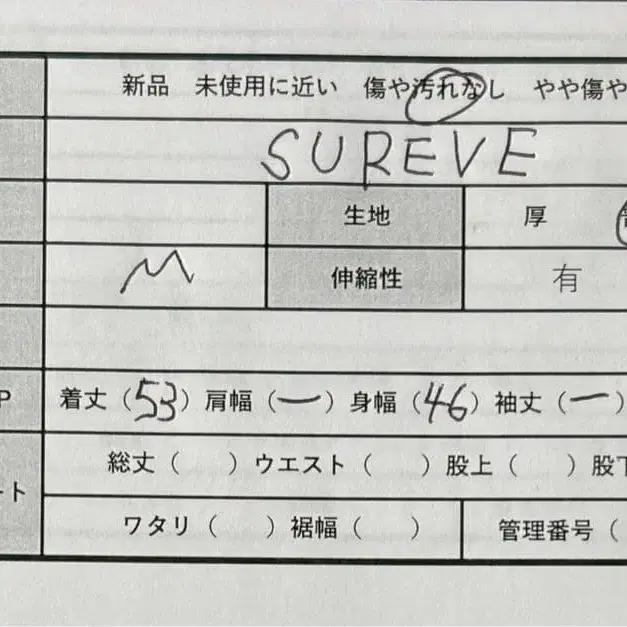 新品 未使用に近い 傷や汚れなし やや傷や
SUREVE
生地 厚
M 伸縮性 有
P 着丈(53) 肩幅(ー) 身幅(46) 袖丈(ー)
総丈( ) ウエスト( ) 股上( ) 股下
ート
ワタリ( ) 裾幅( ) 管理番号(